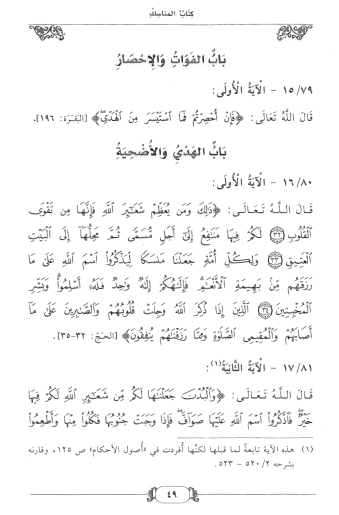 كِتَابُ المَنَاسِك
بَابُ الفَوَاتِ وَالإِحْصَارِ
١٥/٧٩ - الْآيَةُ الْأُولَى:
قَالَ اللَّهُ تَعَالَى: ﴿فَإِنْ أُحْصِرْتُمْ فَمَا اسْتَيْسَرَ مِنَ الْهَدْيِ﴾ [البَقَرَة: ١٩٦].
بَابُ الهَدْيِ وَالأُضْحِيَةِ
١٦/٨٠ - الْآيَةُ الْأُولَى:
قَالَ اللَّهُ تَعَالَى: ﴿ذَٰلِكَ وَمَن يُعَظِّمْ شَعَائِرَ اللَّهِ فَإِنَّهَا مِن تَقْوَى
الْقُلُوبِ ﴿٣٢﴾ لَكُمْ فِيهَا مَنَافِعُ إِلَىٰ أَجَلٍ مُّسَمًّى ثُمَّ مَحِلُّهَا إِلَى الْبَيْتِ
الْعَتِيقِ ﴿٣٣﴾ وَلِكُلِّ أُمَّةٍ جَعَلْنَا مَنسَكًا لِّيَذْكُرُوا اسْمَ اللَّهِ عَلَىٰ مَا
رَزَقَهُم مِّن بَهِيمَةِ الْأَنْعَامِ فَإِلَٰهُكُمْ إِلَٰهٌ وَاحِدٌ فَلَهُ أَسْلِمُوا وَبَشِّرِ
الْمُخْبِتِينَ ﴿٣٤﴾ الَّذِينَ إِذَا ذُكِرَ اللَّهُ وَجِلَتْ قُلُوبُهُمْ وَالصَّابِرِينَ عَلَىٰ مَا
أَصَابَهُمْ وَالْمُقِيمِي الصَّلَاةِ وَمِمَّا رَزَقْنَاهُمْ يُنفِقُونَ﴾ [الحَج: ٣٢-٣٥].
١٧/٨١ - الْآيَةُ الثَّانِيَةُ(١):
قَالَ اللَّهُ تَعَالَى: ﴿وَالْبُدْنَ جَعَلْنَاهَا لَكُم مِّن شَعَائِرِ اللَّهِ لَكُمْ فِيهَا
خَيْرٌ فَاذْكُرُوا اسْمَ اللَّهِ عَلَيْهَا صَوَافَّ فَإِذَا وَجَبَتْ جُنُوبُهَا فَكُلُوا مِنْهَا وَأَطْعِمُوا
(١) هذه الآية تابعةٌ لما قبلها لكنَّها أُفردت في «أصول الأحكام» ص ١٢٥، وقارنه
بشرحه ٢/ ٥٢٠ - ٥٢٣.
٤٩